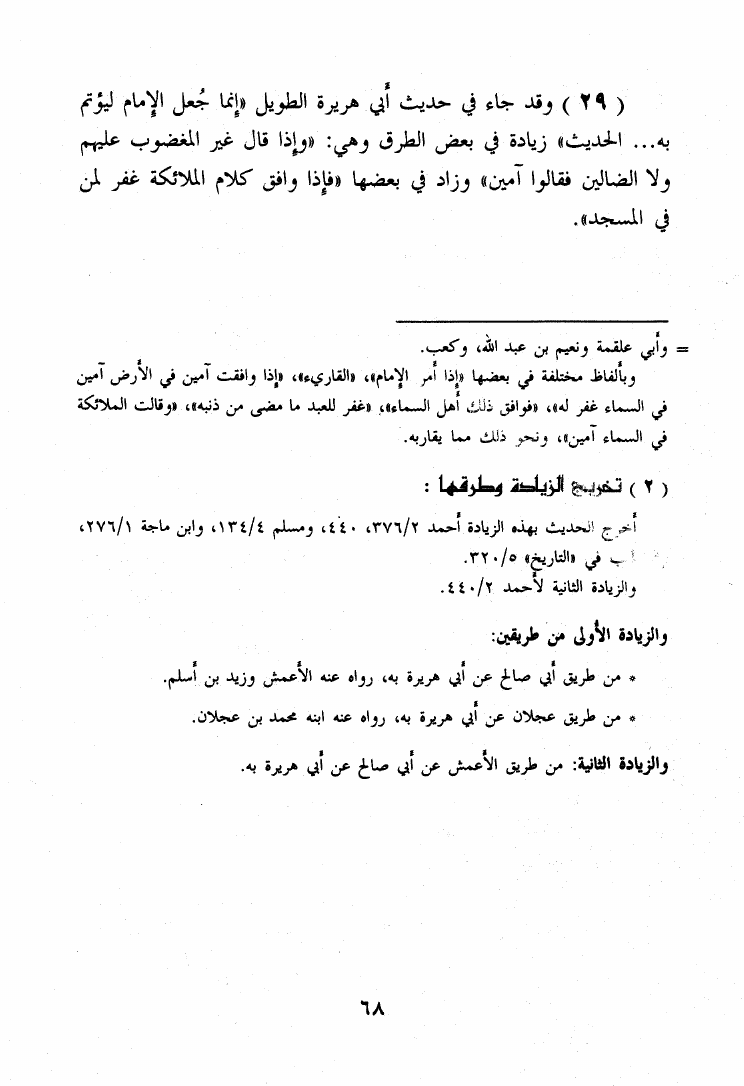 ( ٢٩ ) وقد جاء في حديث أبي هريرة الطويل «إنما جُعل الإمام ليؤتم
به... الحديث» زيادة في بعض الطرق وهي: «وإذا قال غير المغضوب عليهم
ولا الضالين فقالوا آمين» وزاد في بعضها «فإذا وافق كلام الملائكة غفر لمن
في المسجد».
= وأبي علقمة ونعيم بن عبد الله، وكعب.
وبألفاظ مختلفة في بعضها «إذا أمر الإمام»، «القاريء»، «إذا وافقت آمين في الأرض آمين
في السماء غفر له»، «فوافق ذلك أهل السماء»، «غفر للعبد ما مضى من ذنبه»، «وقالت الملائكة
في السماء آمين»، ونحو ذلك مما يقاربه.
( ٢ ) تخريج الزيادة وطرقها :
أخرج الحديث بهذه الزيادة أحمد ٣٧٦/٢، ٤٤٠، ومسلم ١٣٤/٤، وابن ماجة ٢٧٦/١،
في «التاريخ» ٣٢٠/٥.
والزيادة الثانية لأحمد ٤٤٠/٢.
والزيادة الأولى من طريقين:
* من طريق أبي صالح عن أبي هريرة به، رواه عنه الأعمش وزيد بن أسلم.
* من طريق عجلان عن أبي هريرة به، رواه عنه ابنه محمد بن عجلان.
والزيادة الثانية: من طريق الأعمش عن أبي صالح عن أبي هريرة به.
٦٨